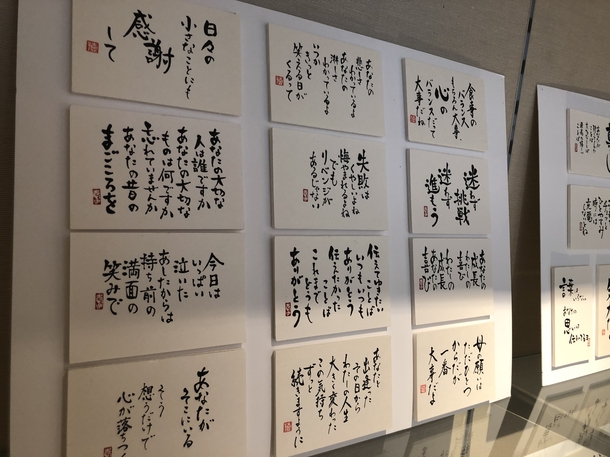 日々の
小さなことにも
感謝
して
あなたの
悲しさ
わかっているよ
あなたの
淋しさ
わかっているよ
いつか
きっと
笑える日が
くるって
食事の
バランス
もちろん大事、
心の
バランスだって
大事だね
あなたの大切な
人は誰ですか
あなたの大切な
ものは何ですか
忘れていませんか
あなたの昔の
まごころを
失敗は
くやしいよね
悔やまれるよね
でも
リベンジが
あるじゃない
迷わず
挑戦
迷わず
進もう
今日は
いっぱい
泣いた
あしたからは
持ち前の
満面の
笑みで
伝えてゆきたい
ことば
いつもいつも
ありがとう
伝えたかった
ことば
これまでも
ありがとう
あなたの
成長
わたしの
喜び
わたしの
成長
あなたの
喜び
あなたが
そこにいる
そう
想うだけで
心が落ちつく
あなたと
出逢った
その日から
わたしの人生
大きく変わった
ずっと
この気持ち
続きますように
母の願いは
ただひとつ
からだが
一番
大事だよ